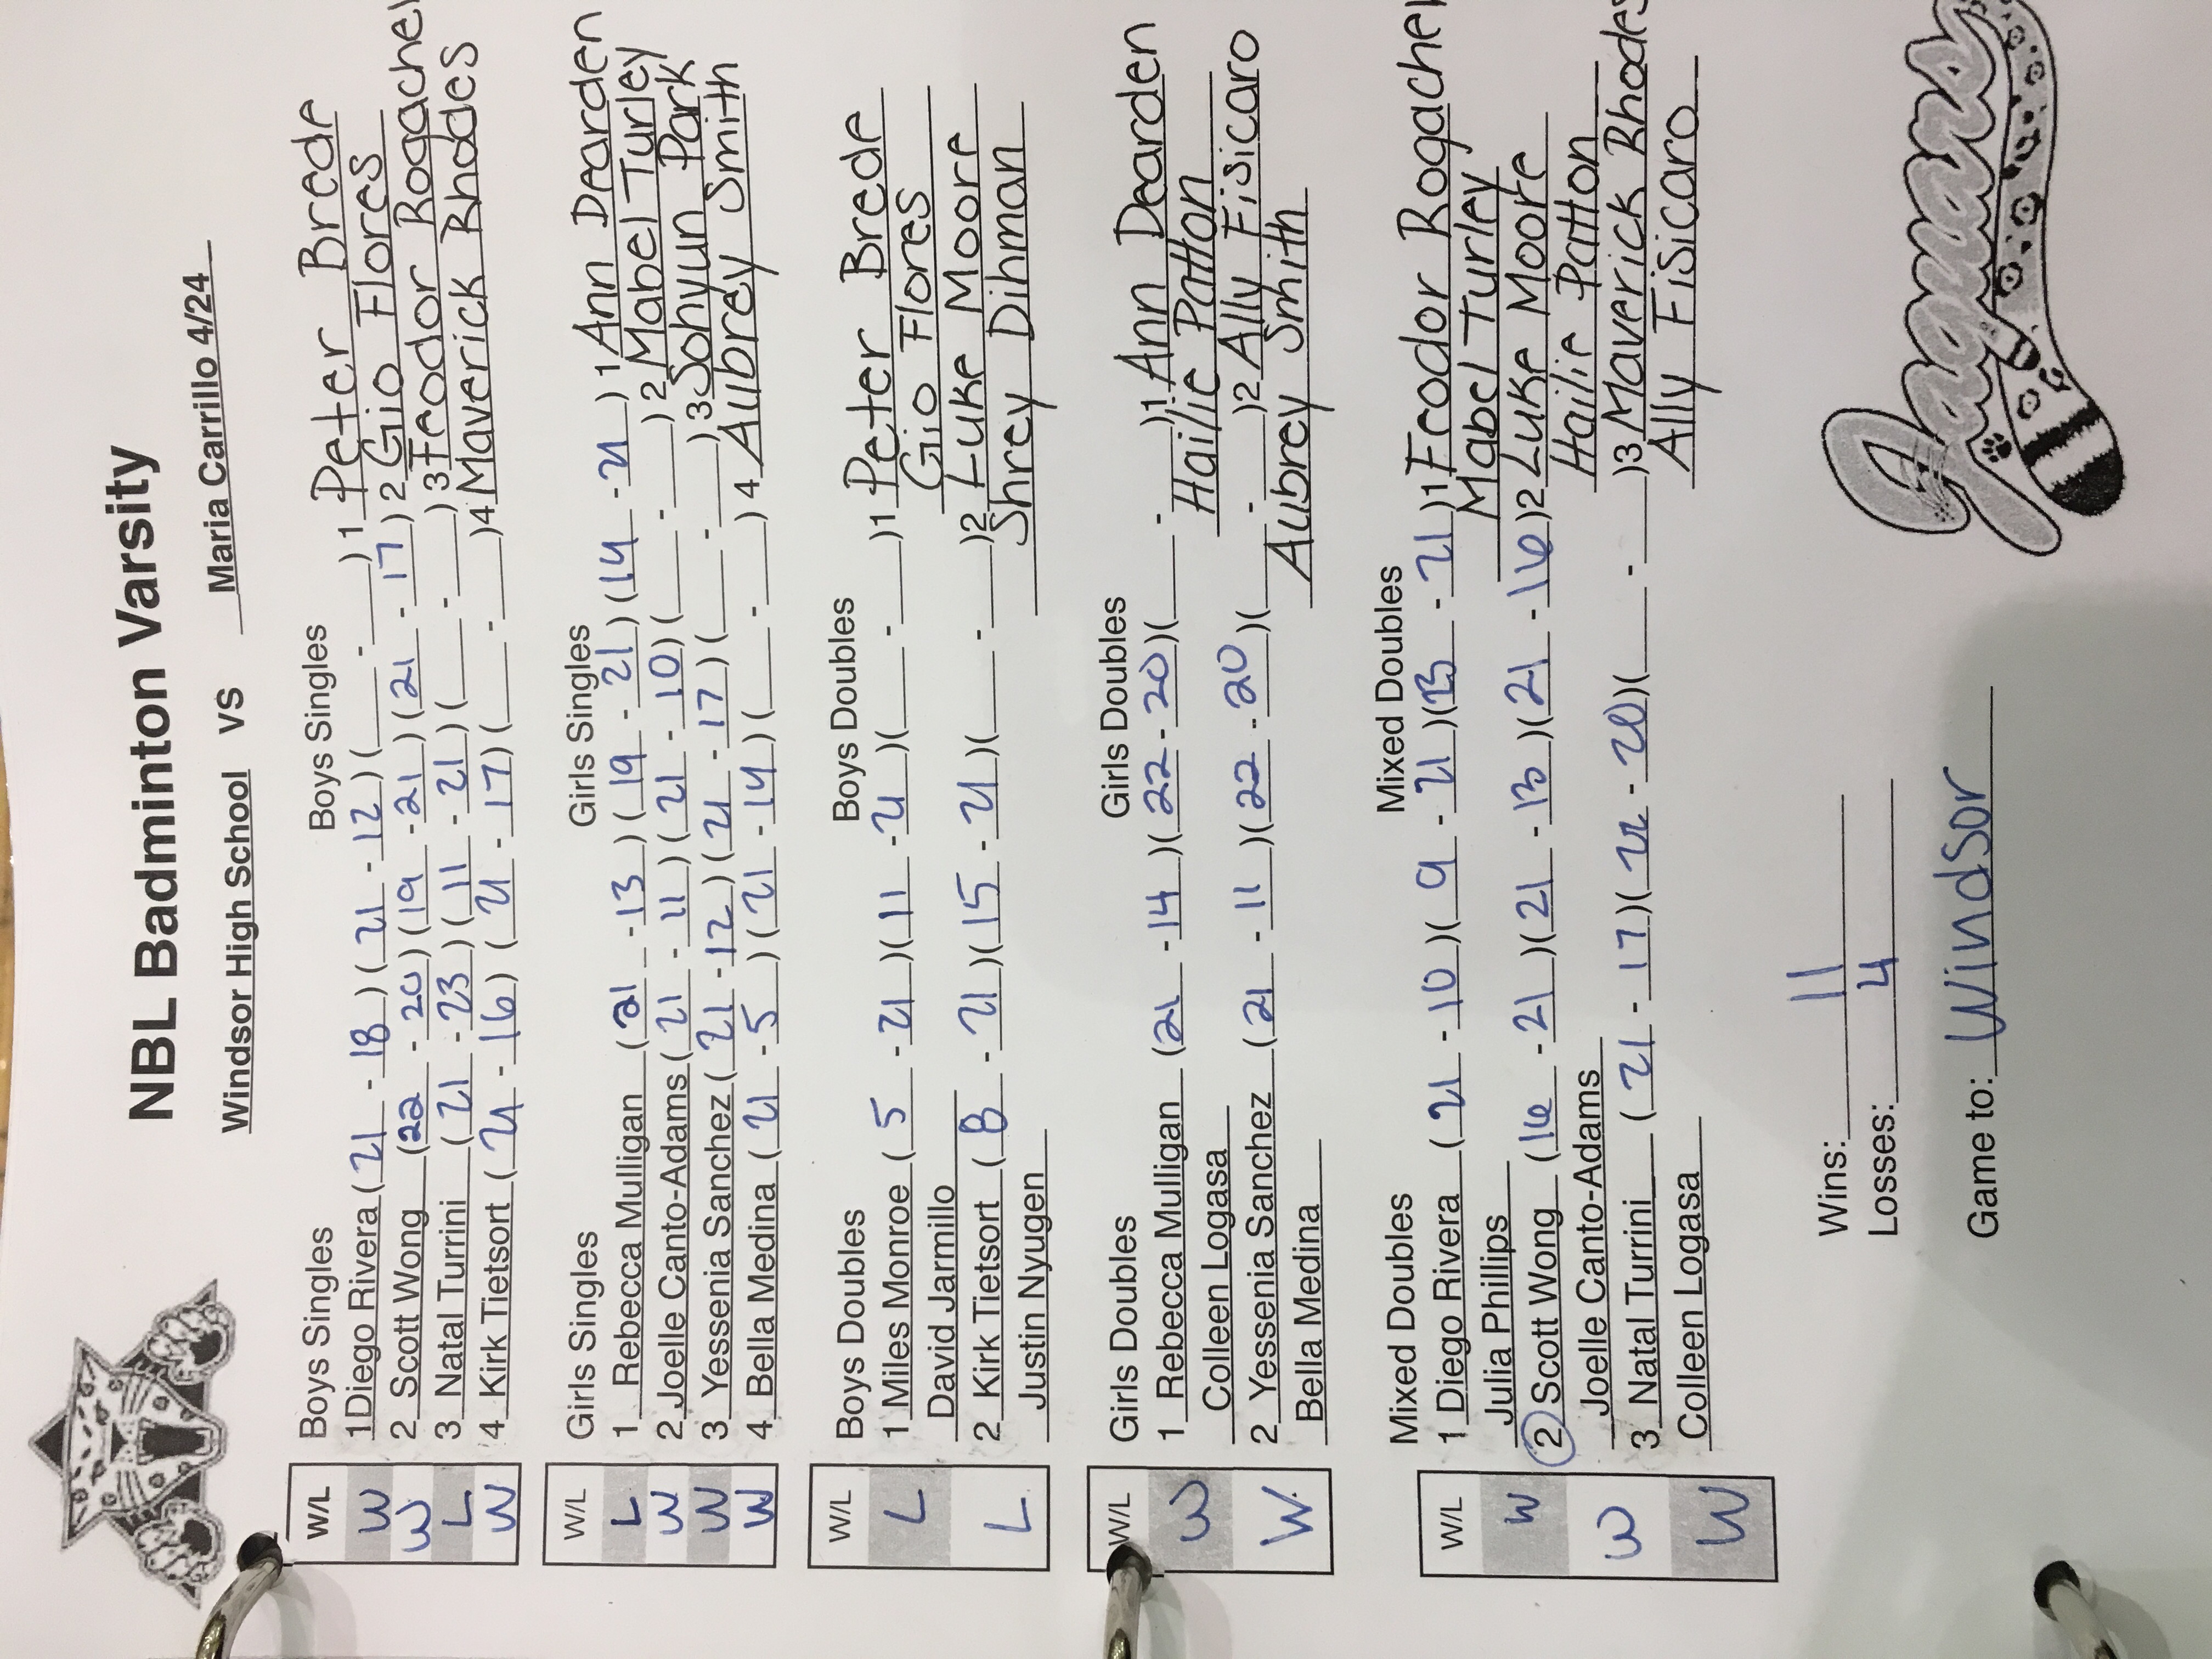 NBL Badminton Varsity
Windsor High School VS Maria Carrillo 4/24
W/L Boys Singles Boys Singles
W 1 Diego Rivera (21 - 18) (21 - 12) ( - ) 1 Peter Brede
W 2 Scott Wong (22 - 20) (19 - 21) (21 - 17) 2 Gio Flores
L 3 Natal Turrini (21 - 23) (11 - 21) ( - ) 3 Feodor Rogachev
W 4 Kirk Tietsort (21 - 16) (21 - 17) ( - ) 4 Maverick Rhodes
W/L Girls Singles Girls Singles
L 1 Rebecca Mulligan (21 - 13) (19 - 21) (14 - 21) 1 Ann Dearden
W 2 Joelle Canto-Adams (21 - 11) (21 - 10) ( - ) 2 Mabel Turley
W 3 Yessenia Sanchez (21 - 12) (21 - 17) ( - ) 3 Sohyun Park
W 4 Bella Medina (21 - 5) (21 - 14) ( - ) 4 Aubrey Smith
W/L Boys Doubles Boys Doubles
L 1 Miles Monroe (5 - 21) (11 - 21) ( - ) 1 Peter Brede
David Jarmillo Gio Flores
L 2 Kirk Tietsort ( - 21) (15 - 21) ( - ) 2 Luke Moore
Justin Nyugen Shrey Dihman
W/L Girls Doubles Girls Doubles
W 1 Rebecca Mulligan (21 - 14) (22 - 20) ( - ) 1 Ann Dearden
Colleen Logasa Hailie Patton
W 2 Yessenia Sanchez (21 - 11) (22 - 20) ( - ) 2 Ally Fisicaro
Bella Medina Aubrey Smith
W/L Mixed Doubles Mixed Doubles
W 1 Diego Rivera (21 - 10) (9 - 21) (13 - 21) 1 Feodor Rogachev
Julia Phillips Mabel Turley
W 2 Scott Wong (16 - 21) (21 - 13) (21 - 16) 2 Luke Moore
Joelle Canto-Adams Hailie Patton
W 3 Natal Turrini (21 - 17) (22 - 20) ( - ) 3 Maverick Rhodes
Colleen Logasa Ally Fisicaro
Wins: 11
Losses: 4
Game to: Windsor
Jaguars